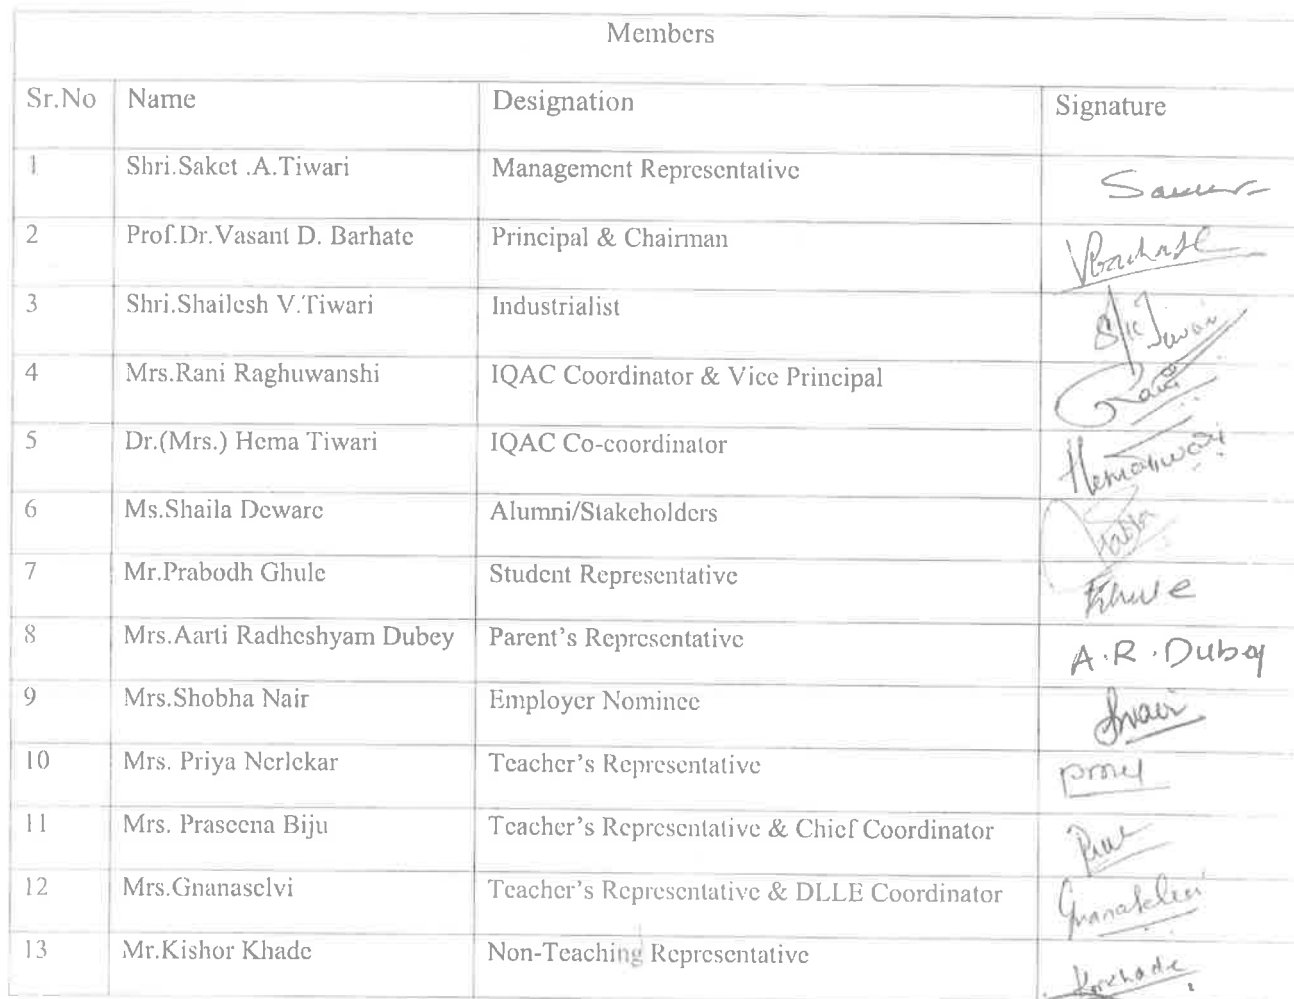 Members
Sr.No Name Designation Signature
1 Shri.Saket .A.Tiwari Management Representative
2 Prof.Dr.Vasant D. Barhate Principal & Chairman
3 Shri.Shailesh V.Tiwari Industrialist
4 Mrs.Rani Raghuwanshi IQAC Coordinator & Vice Principal
5 Dr.(Mrs.) Hema Tiwari IQAC Co-coordinator
6 Ms.Shaila Deware Alumni/Stakeholders
7 Mr.Prabodh Ghule Student Representative
8 Mrs.Aarti Radheshyam Dubey Parent's Representative A.R.Dubey
9 Mrs.Shobha Nair Employer Nominee
10 Mrs. Priya Nerlekar Teacher's Representative
11 Mrs. Praseena Biju Teacher's Representative & Chief Coordinator
12 Mrs.Gnanaselvi Teacher's Representative & DLLE Coordinator
13 Mr.Kishor Khade Non-Teaching Representative